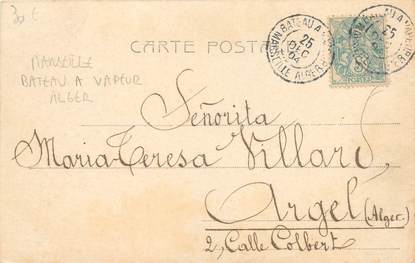 30 €
MARSEILLE
BATEAU A VAPEUR
ALGER
CARTE POSTALE
BATEAU A VAPEUR
25
DEC
04
MARSEILLE ALGER
25
Señorita
Maria-Teresa Villard,
Argel (Alger.)
2, Calle Colbert